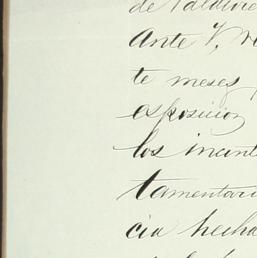 de Valdivie
Ante
te meses
esposicion
los
tamentari
cia hecha